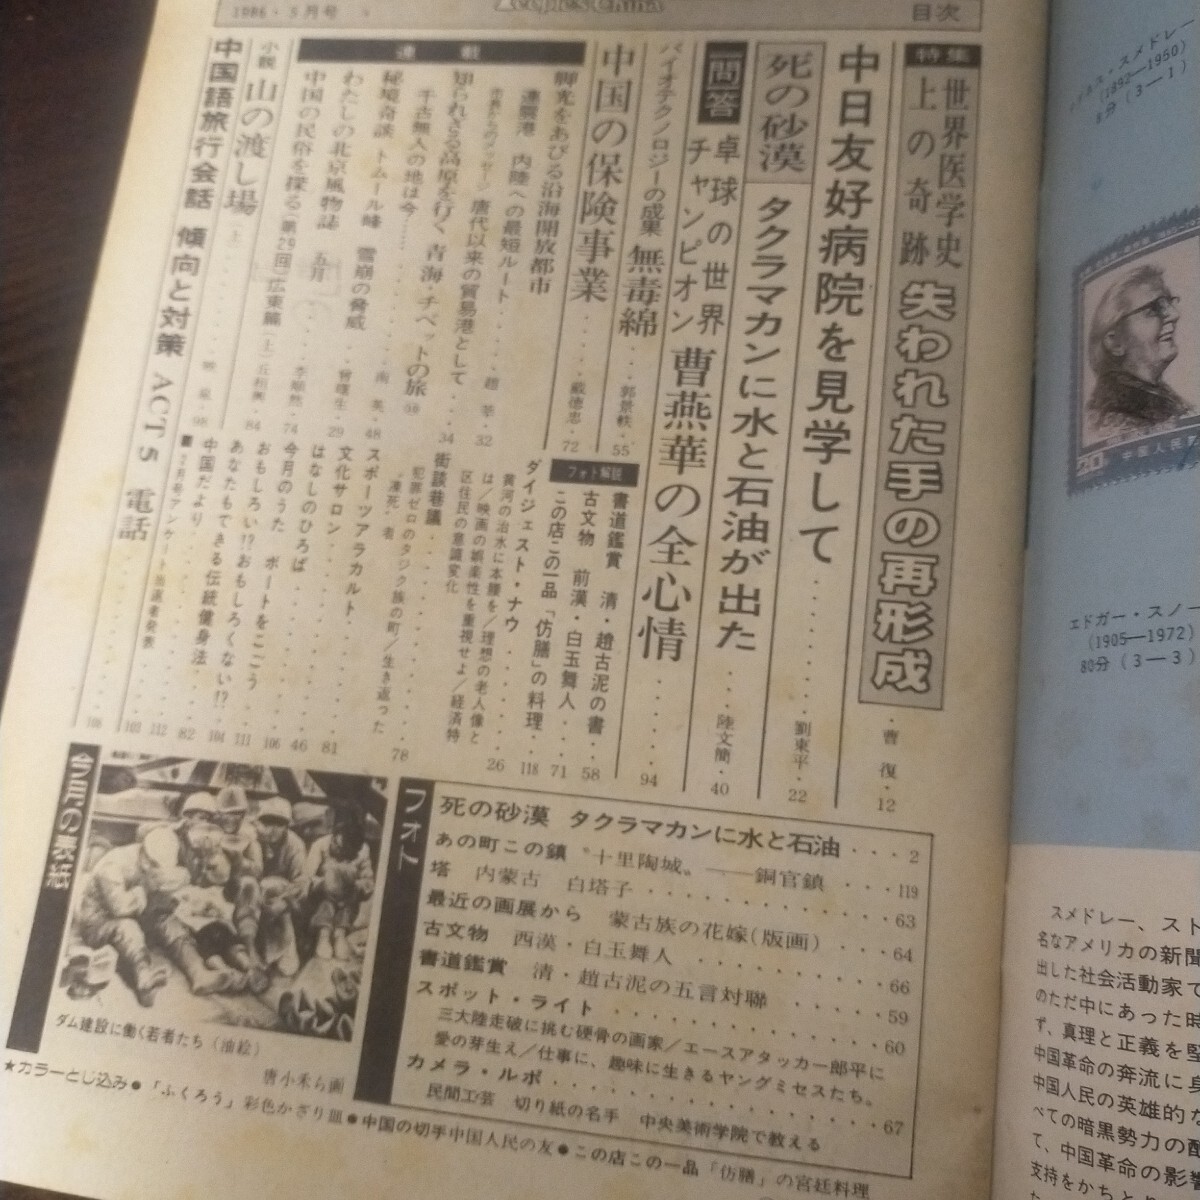 1986・5月号
People's China
目次
特集
世界医学史
上の奇跡
失われた手の再形成・曹 復・12
中日友好病院を見学して・・・・・劉東平・22
死の砂漠 タクラマカンに水と石油が出た・・・陸文簡・40
問答
卓球の世界
チャンピオン 曹燕華の全心情・・・・・94
バイオテクノロジーの成果 無毒綿・・・郭景
55
中国の保険事業・・・・厳徳忠・72
連載
脚光をあびる沿海開放都市
連雲港 内陸への最短ルート・・・・趙
32
唐代以来の貿易港として・・・34
知られざる高原を行く 青海・チベットの旅
千古無人の地は今……
48
秘境奇談 トムール峰 雪崩の脅威・
29
わたしの北京風物誌 五月・・・・・李順然・74
中国の民俗を探る(第29回)広東篇(上)丘桓興・84
小説 山の渡し場(上)
98
中国語旅行会話 傾向と対策 ACT 5 電話・・・・・108
フォト解説
書道鑑賞 清・趙古泥の書・・58
古文物 前漢・白玉舞人・・・71
この店この一品「仿膳」の料理・118
ダイジェスト・ナウ・・・・・26
黄河の治水に本腰を/理想の老人像と
は/映画の娯楽性を重視せよ/経済特
区住民の意識変化
街談巷議・・・・・78
犯罪ゼロのタジク族の町/生き返った
“凍死”者
スポーツアラカルト
文化サロン・・・・・81
はなしのひろば・・・・・46
今月のうた ボートをこごう・・106
おもしろい!?おもしろくない!?・・111
あなたもできる伝統健身法・・104
中国だより・・・・・82
フォト
死の砂漠 タクラマカンに水と石油・・・2
あの町この鎮 〝十里陶城〟——銅官鎮・・・119
塔 内蒙古 白塔子・・・・・63
最近の画展から 蒙古族の花嫁(版画)・・・64
古文物 西漢・白玉舞人・・・・・66
書道鑑賞 清・趙古泥の五言対聯・・・・59
スポット・ライト・・・・・60
三大陸走破に挑む硬骨の画家/エースアタッカー郎平に
愛の芽生え/仕事に、趣味に生きるヤングミセスたち。
カメラ・ルポ・・・・・67
民間工芸 切り紙の名手 中央美術学院で教える
今月の表紙
ダム建設に働く若者たち(油絵)
唐小禾ら画
★カラーとじ込み●「ふくろう」彩色かざり皿●中国の切手中国人民の友●この店この一品「仿膳」の宮廷料理
スメドレー
(1892—1950)
8分(3—1)
中国人民
エドガー・スノー
(1905—1972)
80分(3—3)
スメドレー、スト
名なアメリカの新聞
出した社会活動家で
のただ中にあった時
ず、真理と正義を堅
中国革命の奔流に身
中国人民の英雄的な
べての暗黒勢力の
て、中国革命の影響
支持をかちと